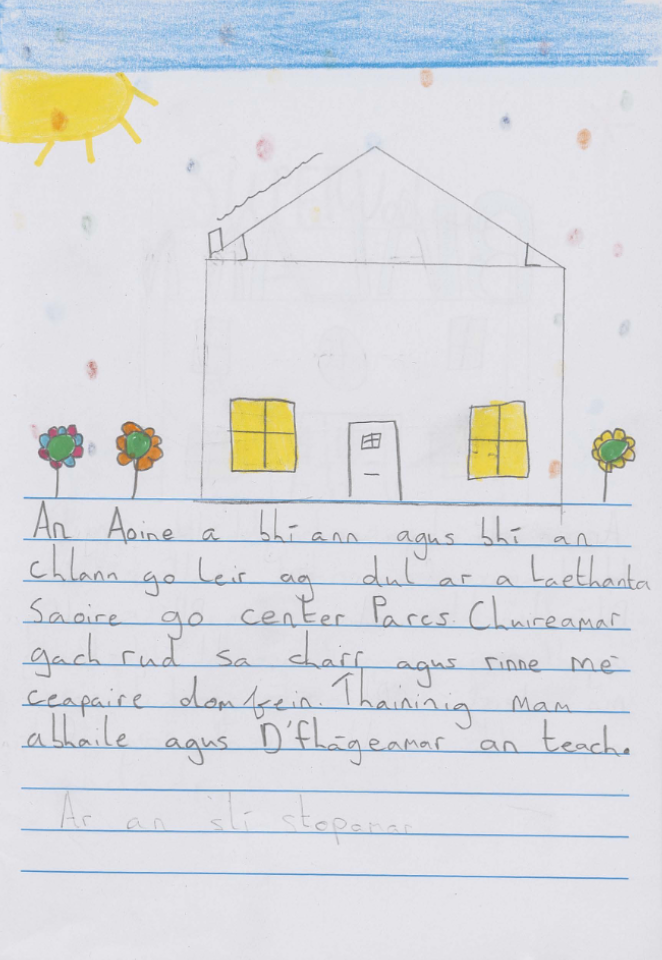 An Aoine a bhí ann agus bhí an
chlann go leir ag dul ar a laethanta
Saoire go center Parcs. Chuireamar
gach rud sa charr agus rinne mé
ceapaire dom fein. Tháininig mam
abhaile agus D'fhágeamar an teach.
Ar an slí stopamar